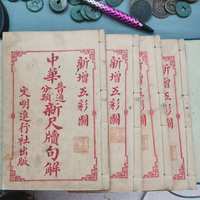 新增五彩圖
中華普通
分類新尺牘句解
文明進行社出版
新增五彩圖
新增五彩圖
新增五彩圖